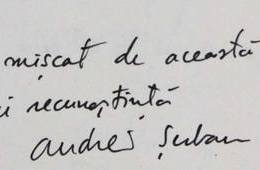 mișcat de această
și recunoștință
Andrei Șerban